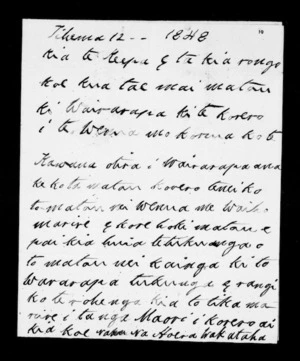 Tihema 12 -- 1848
kia te Keepa e ta kia rongo
koe kua tae mai matou
ki Wairarapa ki te korero
i te Wenua mo korua ko te
Kawana otira i Wairarapa ana
ke kota matou korero
to matou nei wenua me Waiho
marire e kore hoki matou e
pai kia huia te tukunga o
to matou nei kainga ki to
Wararapa tukunga e rangi
ko te rohenga kia to tika ma
rire i tanga Maori i korero ai
kia koe